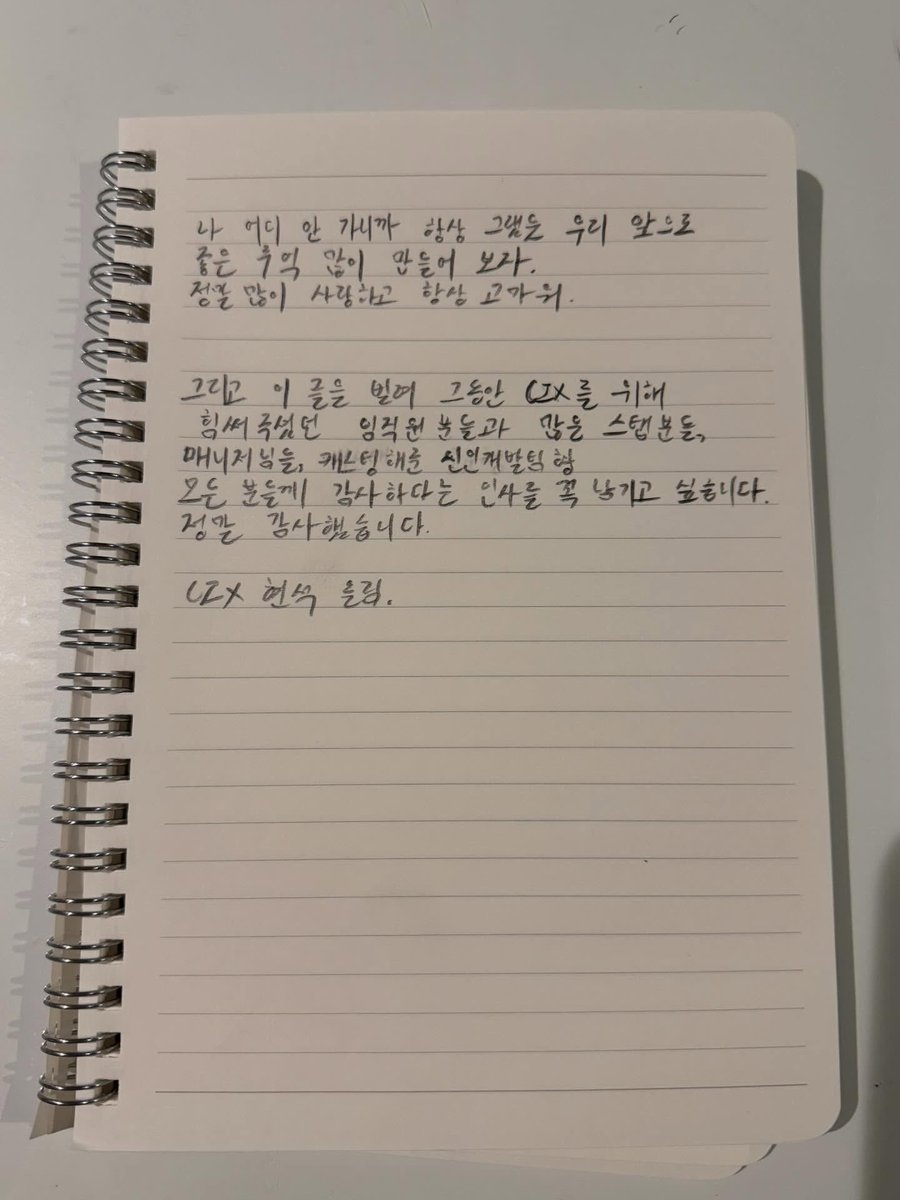 나 어디 안 가니까 항상 그랬듯 우리 앞으로
좋은 추억 많이 만들어 보자.
정말 많이 사랑하고 항상 고마워.
그리고 이 글을 빌려 그동안 CIX를 위해
힘써주셨던 임직원분들과 많은 스탭분들,
매니저님들, 캐스팅해준 신인개발팀 형
모든 분들께 감사하다는 인사를 꼭 남기고 싶습니다.
정말 감사했습니다.
CIX 현석 올림.